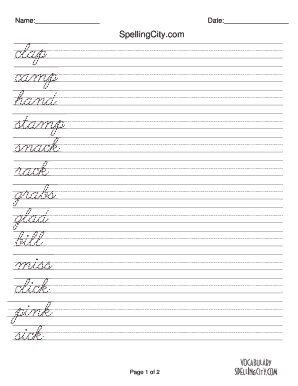 Name:________________ Date:________________
SpellingCity.com
clap
camp
hand
stamp
snack
rack
grabs
glad
bill
miss
click
pink
sick
Page 1 of 2
VOCABULARY
SPELLINGCITY.COM